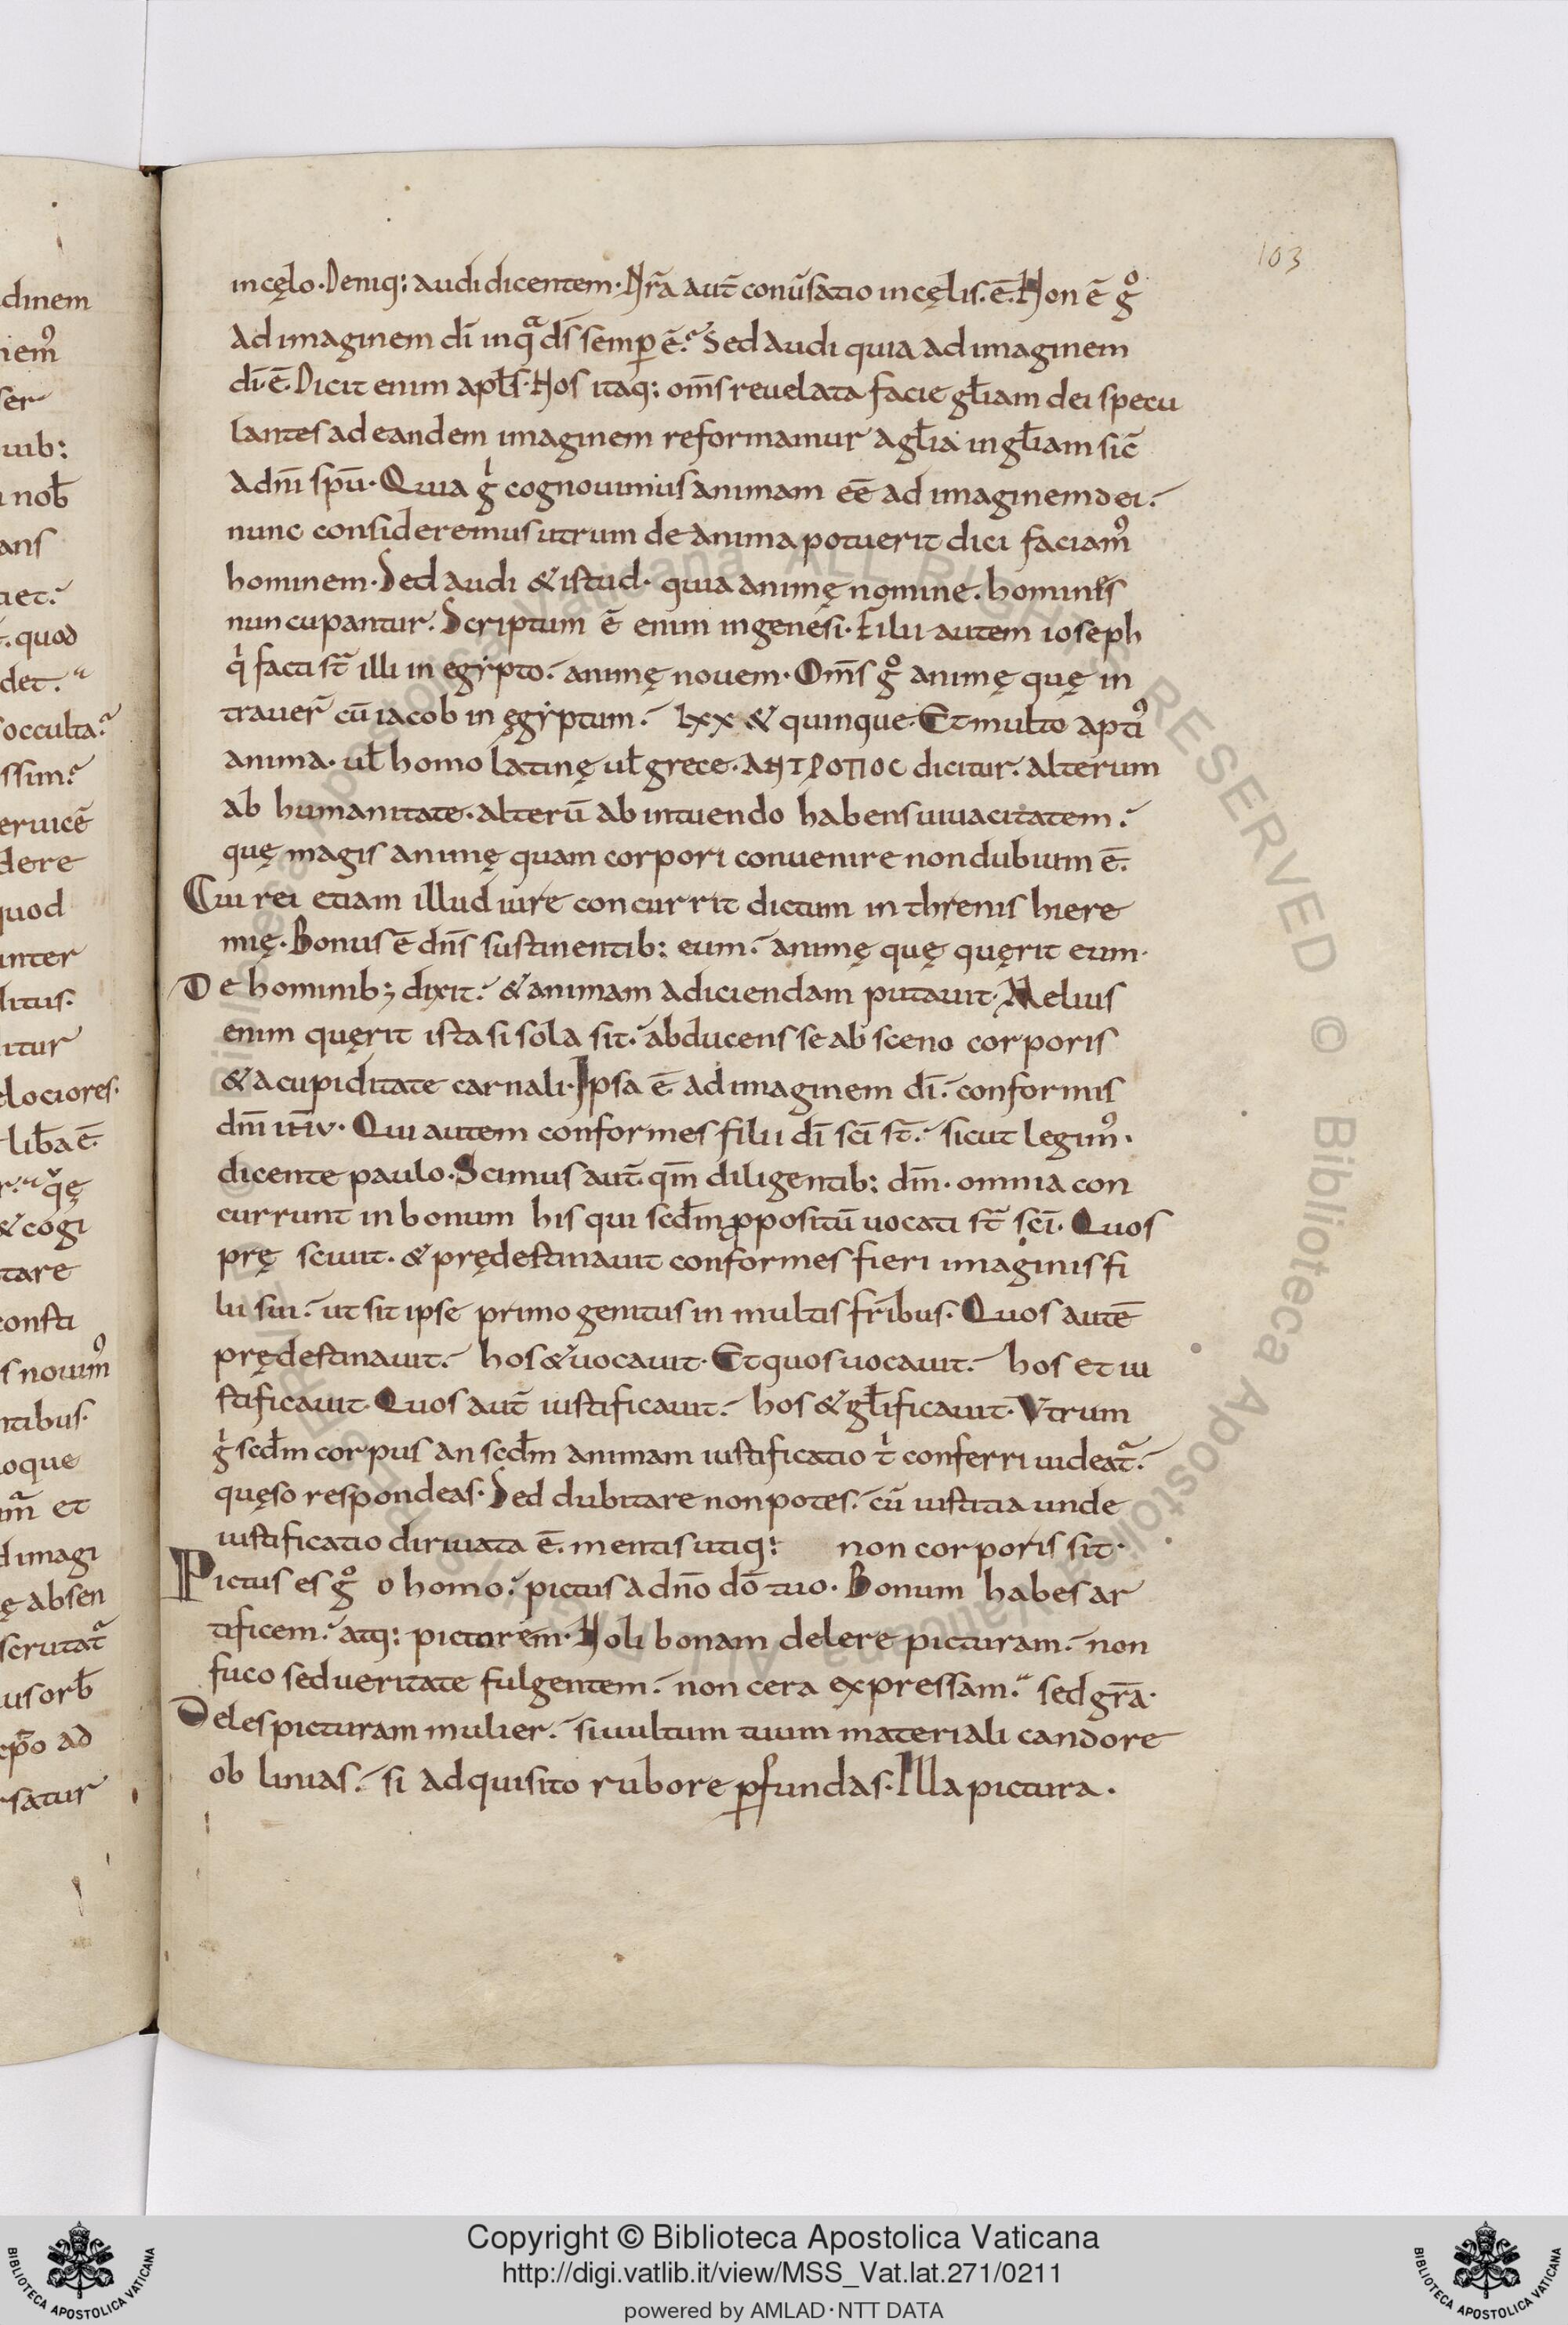 103
incęlo. Deniq: audi dicentem. Nr̄a aut̄ conūsatio incęlis. ē. Non ē gͦ
ad imaginem dī inqͣ ds̄ semp̱ ē. Sed audi quia ad imaginem
dī. ē. Dicit enim apłs. Nos itaq: oms̄ reuelata facie gl̄iam dei specu
lantes ad eandem imaginem reformamur a gl̄ia in gl̄iam sic̄
adnī spū. Quia gͥ cognouimus animam eē ad imaginem dei.
nunc consideremus utrum de anima potuerit dici faciam᾿
hominem. Sed audi & istud. quia animę nomine. homines
nuncupantur. Scriptum ē enim in genesi. Filii autem ioseph
qͥ facti st̄ illi in egẏpto. animę nouem. Oms̄ gͦ animę quę in
trauer̄ cū iacob in ęgẏptum. Lxx & quinque. Et multo apti᾿
anima. ul̄ homo latinę ul̄ grece. ΑΝΤΡΟΠΟC dicitur. alterum
ab humanitate. alterū ab intuendo habens uiuacitatem.
quę magis animę quam corpori conuenire non dubium ē.
Cui rei etiam illud iure concurrit dictum in threnis hiere
mię. Bonus ē dns̄ sustinentib: eum. animę quę quęrit eum.
De hominib; dixit. & animam adiciendam putauit. Melius
enim quęrit ista si sola sit. abducens se ab sceno corporis
& a cupiditate carnali. Ipsa ē ad imaginem dī. conformis
dnī . Qui autem conformes filii dī scī st̄. sicut legim᾿.
dicente paulo. Scimus aut̄. qm̄ diligentib: dm̄. omnia con
currunt in bonum his qui scd̄m ꝓpositū uocati st̄ scī. Quos
prę sciuit. & prędestinauit conformes fieri imaginis fi
lii sui. ut sit ipse primo genitus in multis fr̄ibus. Quos autē
prędestinauit. hos & uocauit. Et quos uocauit. hos et iu
stificauit. Quos aut̄ iustificauit. hos & gl̄ificauit. Vtrum
gͥ scd̄m corpus an scd̄m animam iustificatio tͥ conferri uideat᷑.
quęso respondeas. Sed dubitare non potes. cū iustitia unde
iustificatio diriuata ē. mentis utiq: non corporis sit.
Pictus es gͦ o homo. pictus a dnō dō tuo. Bonum habes ar
tificem. atq: pictorem. Noli bonam delere picturam. non
fuco sed ueritate fulgentem. non cera expressam. sed gr̄a.
Deles picturam mulier. si uultum tuum materiali candore
ob linias. si adquisito rubore p̱fundas. Illa pictura.
Copyright © Biblioteca Apostolica Vaticana
http://digi.vatlib.it/view/MSS_Vat.lat.271/0211
powered by AMLAD·NTT DATA